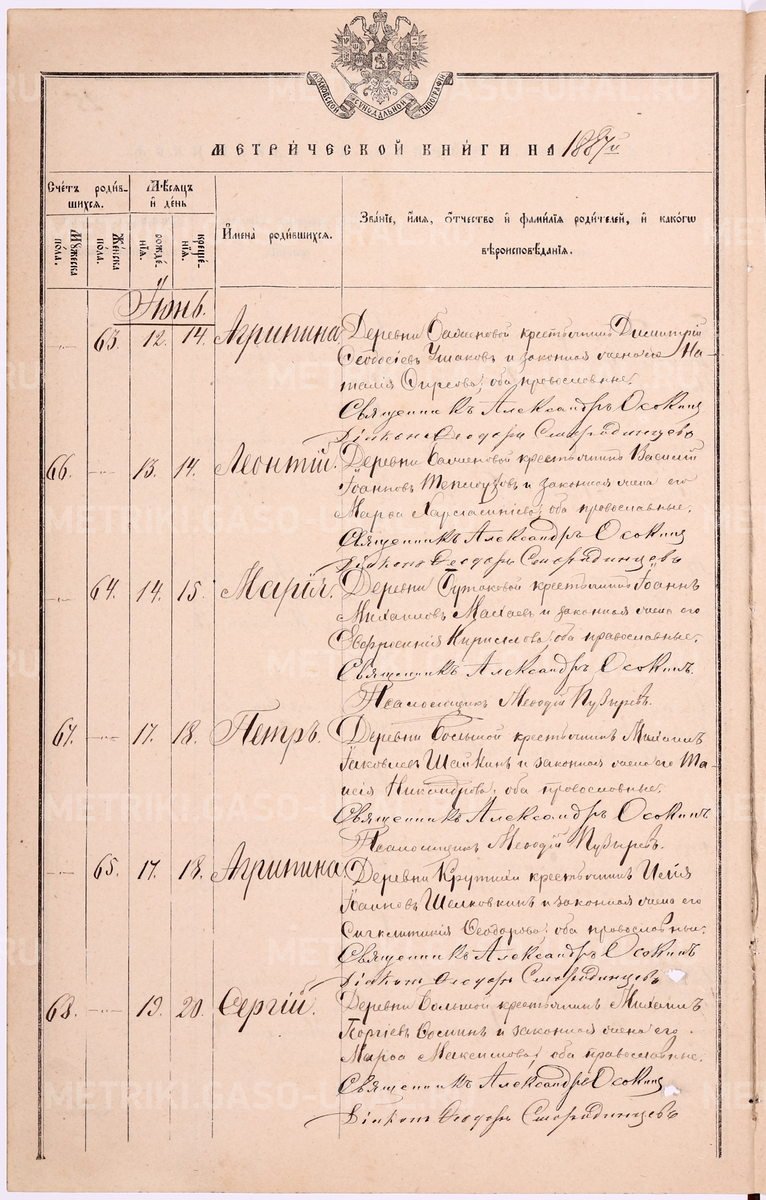 МОСКОВСКОЙ СѴНОДАЛЬНОЙ ТИПОГРАФІИ
МЕТРИЧЕСКОЙ КНИГИ НА 1887й
Счетъ родившихся.
Мѣсяцъ и день
Имена родившихся.
Званіе, имя, отчество и фамилія родителей, и какогѡ вѣроисповѣданія.
Мужеска пола.
Женска пола.
рожденія.
крещенія.
Іюнь.
63. 12. 14. Агрипина Деревни крестьянинъ Димитрій
Ѳеодосіевъ Ушаковъ и законная жена его На-
талія оба православные.
Священникъ Александръ Осокинъ
Діаконъ Ѳеодоръ Смородинцевъ
66. 13. 14. Леонтій. Деревни крестьянинъ Василій
Іоанновъ и законная жена его
Марѳа оба православные.
Священникъ Александръ Осокинъ
Діаконъ Ѳеодоръ Смородинцевъ
64. 14. 15. Марія. Деревни Бутаковой крестьянинъ Іоаннъ
Михаиловъ и законная жена его
Евфросинія Кирилова, оба православные.
Священникъ Александръ Осокинъ.
Псаломщикъ Меѳодій Пузыревъ.
67. 17. 18. Петръ. Деревни Большой крестьянинъ Михаилъ
Іаковлевъ Шайкинъ и законная жена его Та-
исія Никандрова, оба православные.
Священникъ Александръ Осокинъ
Псаломщикъ Меѳодій Пузыревъ.
65. 17. 18. Агрипина Деревни крестьянинъ Илія
Іоанновъ Шелковкинъ и законная жена его
Сигклитикія Ѳеодорова, оба православные.
Священникъ Александръ Осокинъ
Діаконъ Ѳеодоръ Смородинцевъ
68. 19. 20. Сергій. Деревни Большой крестьянинъ Михаилъ
и законная жена его
Марѳа Максимова, оба православные.
Священникъ Александръ Осокинъ
Діаконъ Ѳеодоръ Смородинцевъ